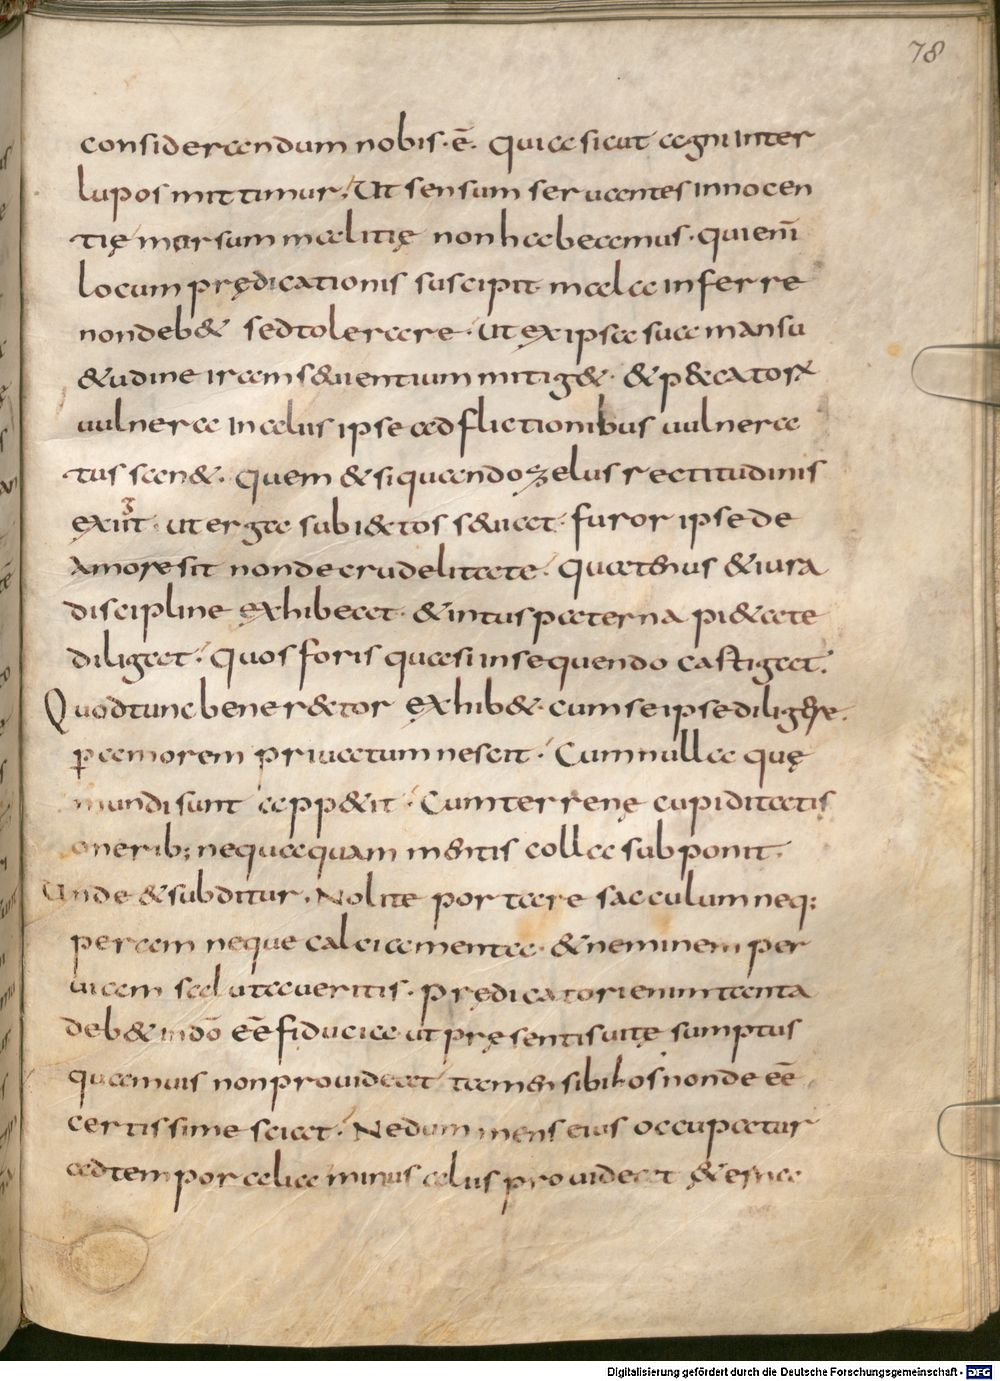 78
considerandum nobis·ē· quia sicut agni inter
lupos mittimur; Ut sensum seruantes innocen
tię morsum malitię non habeamus· qui enī
locum prędicationis suscipit mala inferre
non deb& sed tolerare· ut ex ipsa sua mansu
&udine iram sęuientium mitig&· & peccatorū
uulnera in aliis ipse adflictionibus uulnera
tus san&· Quem & si quando zelus rectitudinis
exiit ut erga subi&tos sęuiat· furor ipse de
amore sit non de crudelitate· quatenus & iura
discipline exhibeat· & intus paterna pi&ate
diligat· Quos foris quasi insequendo castigat·
Quod tunc bene r&tor exhib&· cum se ipse diligere
p amorem priuatum nescit· Cum nulla quę
mundi sunt app&it· Cum terrenę cupiditatis
onerib; nequaquam mentis colla subponit·
Unde & subditur· Nolite portare sacculum neq;
peram neque calciamenta· & neminem per
uiam salutaueritis· Prędicatori enim tanta
deb& in dō ēē fiducia ut pręsentis uitę sumptus
quamuis non prouideat tamen sibi hos non deēē
certissime sciat· Ne dum mens eius occupatur
ad temporalia minus aliis prouideat &erna
Digitalisierung gefördert durch die Deutsche Forschungsgemeinschaft - DFG